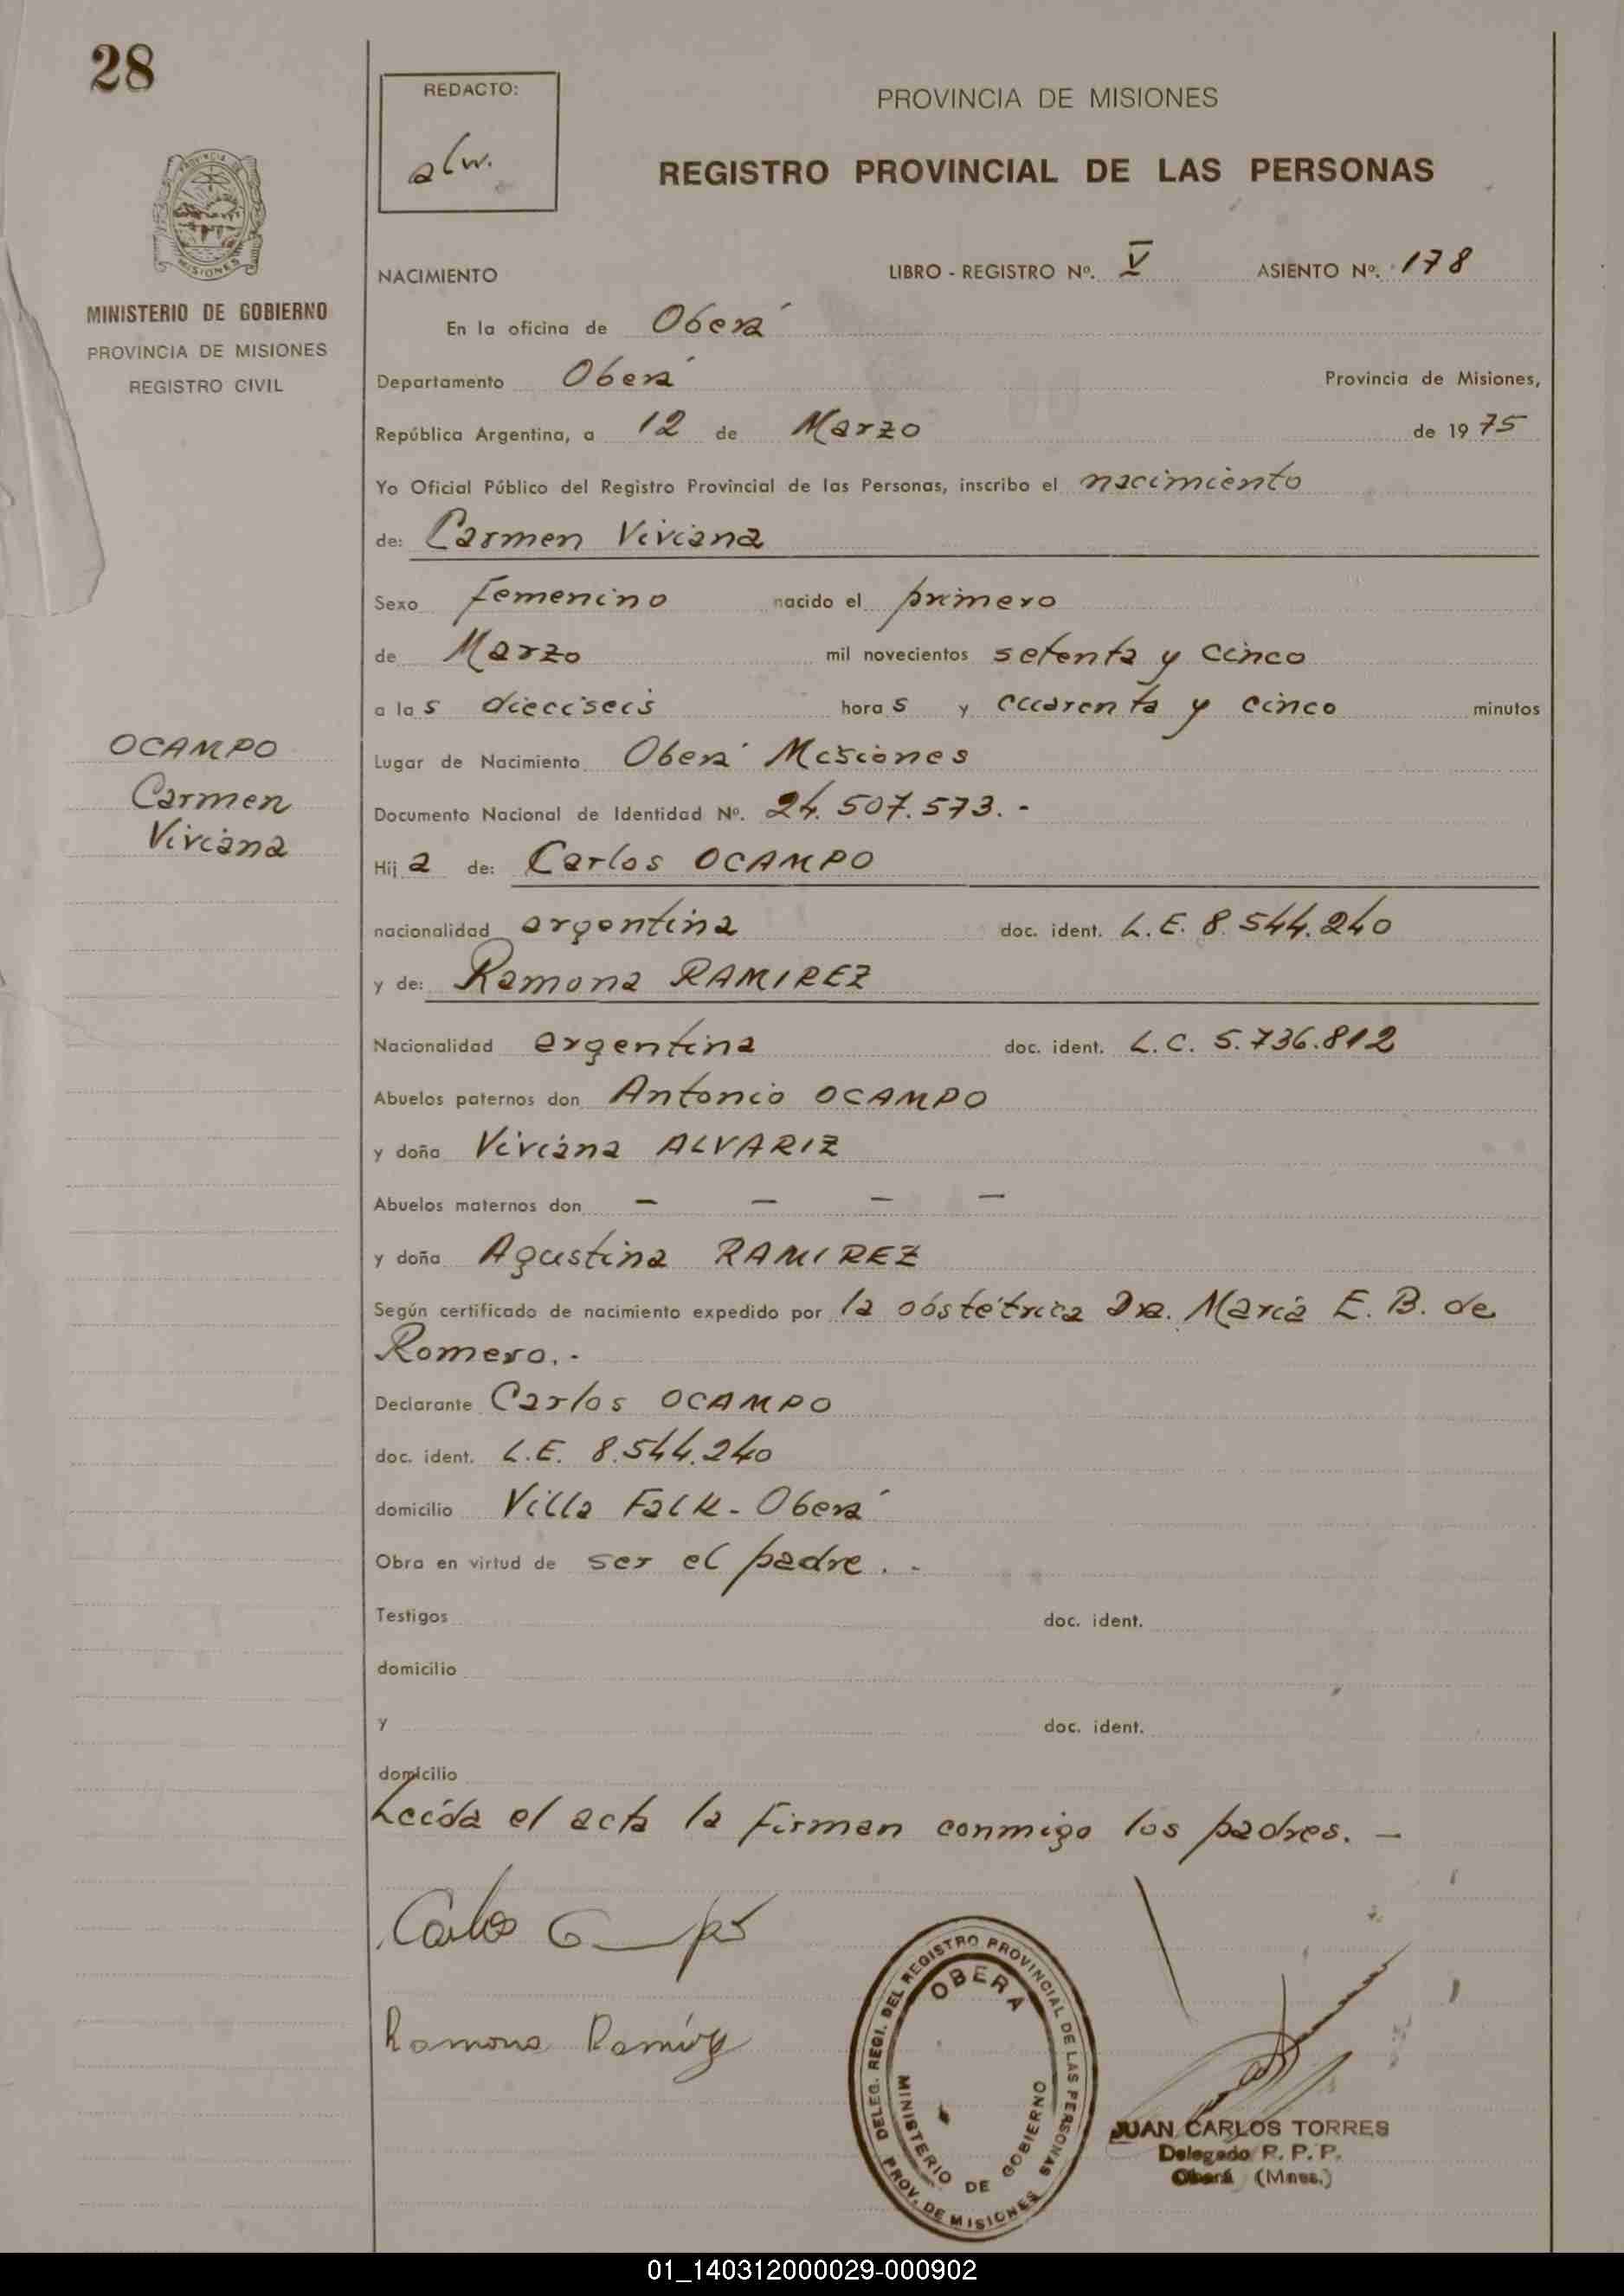 28
REDACTO:
alw.
PROVINCIA DE MISIONES
REGISTRO PROVINCIAL DE LAS PERSONAS
MISIONES
MINISTERIO DE GOBIERNO
PROVINCIA DE MISIONES
REGISTRO CIVIL
NACIMIENTO LIBRO - REGISTRO Nº. V ASIENTO Nº. 178
En la oficina de Oberá
Departamento Oberá Provincia de Misiones,
República Argentina, a 12 de Marzo de 1975
Yo Oficial Público del Registro Provincial de las Personas, inscribo el nacimiento
de: Carmen Viviana
Sexo femenino nacido el primero
de Marzo mil novecientos setenta y cinco
a las dieciseis horas y cuarenta y cinco minutos
OCAMPO
Carmen
Viviana
Lugar de Nacimiento Oberá Misiones
Documento Nacional de Identidad Nº. 24.507.573.-
Hija de: Carlos OCAMPO
nacionalidad argentina doc. ident. L.E. 8.544.240
y de: Ramona RAMIREZ
Nacionalidad argentina doc. ident. L.C. 5.736.812
Abuelos paternos don Antonio OCAMPO
y doña Viviana ALVARIZ
Abuelos maternos don - - - -
y doña Agustina RAMIREZ
Según certificado de nacimiento expedido por la obstétrica Dra. María E. B. de
Romero.-
Declarante Carlos OCAMPO
doc. ident. L.E. 8.544.240
domicilio Villa Falk - Oberá
Obra en virtud de ser el padre.-
Testigos doc. ident.
domicilio
y doc. ident.
domicilio
Leída el acta la firman conmigo los padres. -
Carlos Ocampo
Ramona Ramírez
DELEG. REGI. DEL REGISTRO PROVINCIAL DE LAS PERSONAS
OBERA
MINISTERIO DE GOBIERNO
PROV. DE MISIONES
JUAN CARLOS TORRES
Delegado R. P. P.
Oberá (Mnes.)
01_140312000029-000902